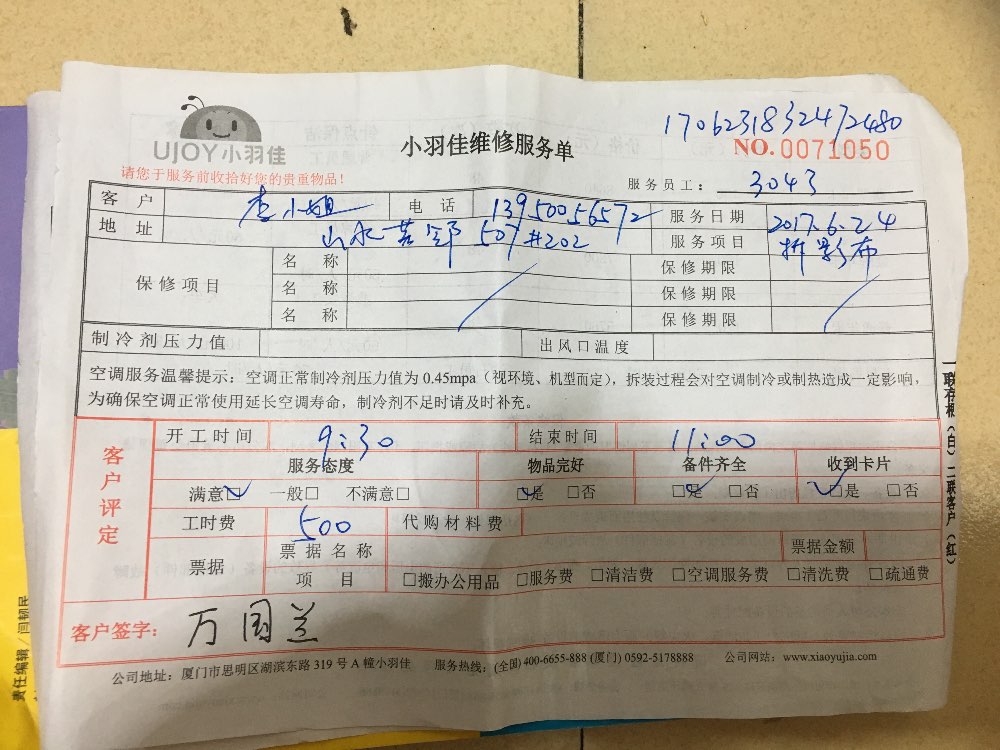 1706231832472480
UJOY小羽佳
小羽佳维修服务单
NO.0071050
请您于服务前收拾好您的贵重物品!
服务员工: 3043
客户 李小姐 电话 13950056572 服务日期 2017.6.24
地址 山水芸邻 507#202 服务项目 拆影布
保修项目 名称 保修期限
名称 保修期限
名称 保修期限
制冷剂压力值 出风口温度
空调服务温馨提示:空调正常制冷剂压力值为0.45mpa(视环境、机型而定),拆装过程会对空调制冷或制热造成一定影响,
为确保空调正常使用延长空调寿命,制冷剂不足时请及时补充。
一联存根(白)二联客户(红)
客户评定
开工时间 9:30 结束时间 11:00
服务态度 物品完好 备件齐全 收到卡片
满意☑ 一般□ 不满意□ ☑是 □否 ☑是 □否 ☑是 □否
工时费 500 代购材料费
票据 票据名称 票据金额
项目 □搬办公用品 □服务费 □清洁费 □空调服务费 □清洗费 □疏通费
客户签字: 万国兰
公司地址:厦门市思明区湖滨东路319号A幢小羽佳 服务热线:(全国)400-6655-888(厦门)0592-5178888 公司网站:www.xiaoyujia.com
责任编辑/闫韧民